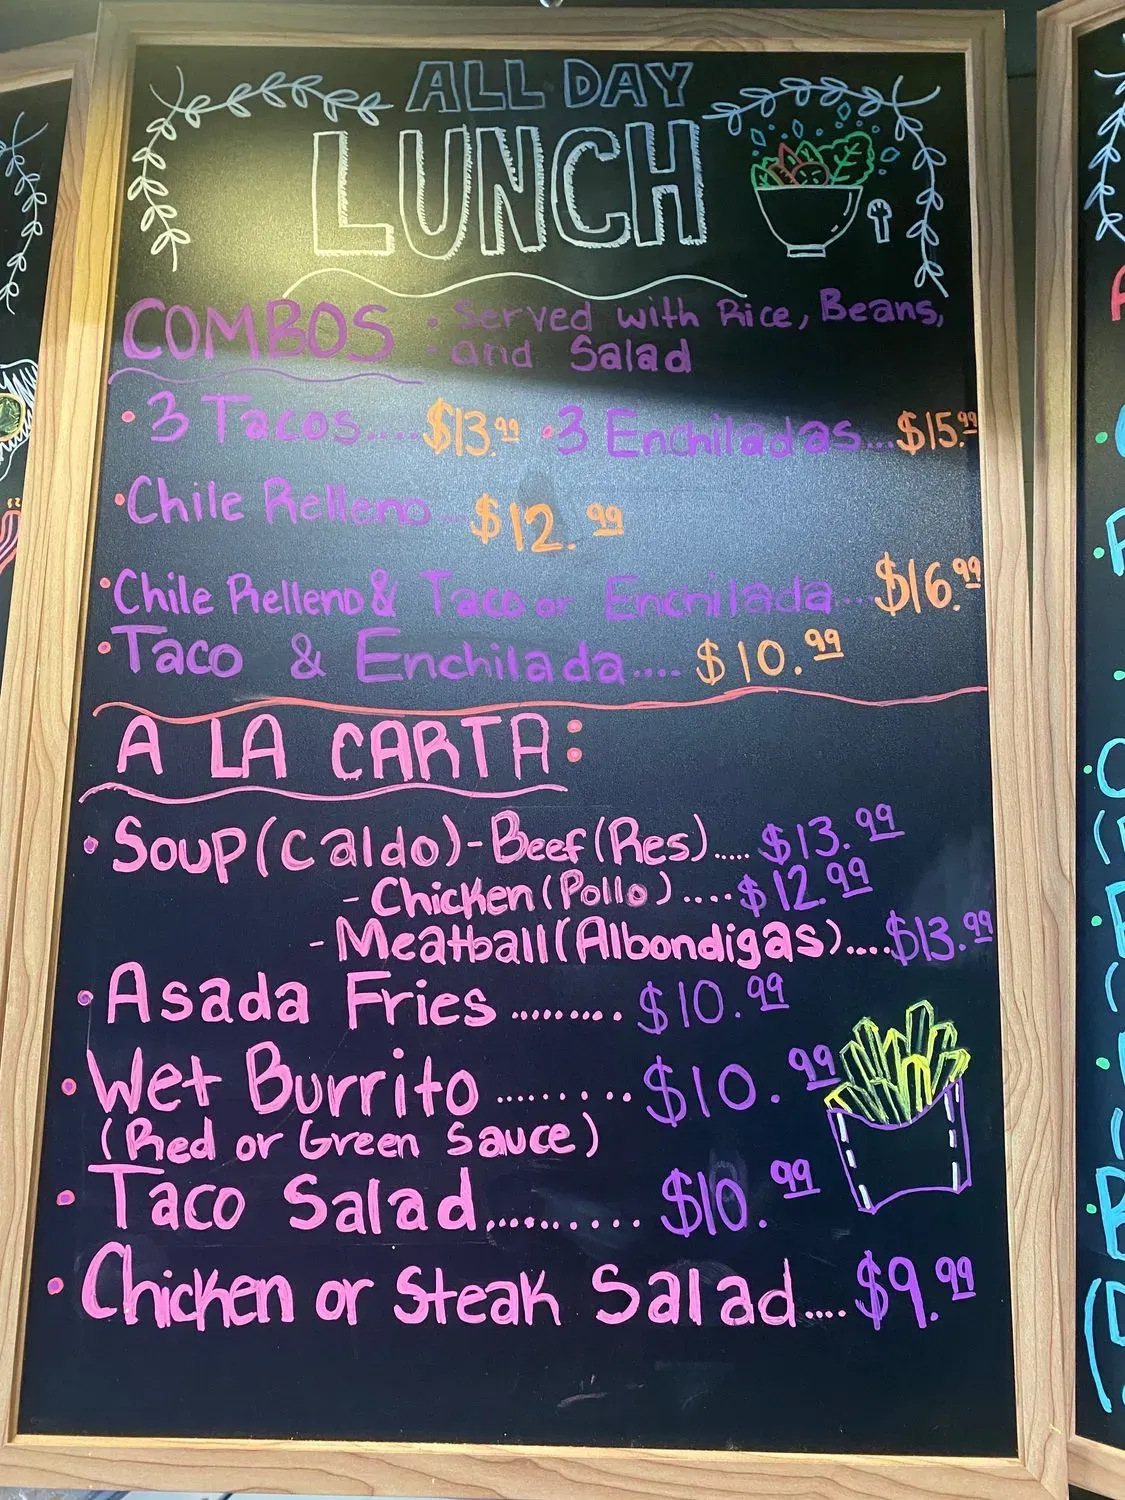 ALL DAY
LUNCH
COMBOS • Served with Rice, Beans,
• and Salad
• 3 Tacos.....$13.99 • 3 Enchiladas...$15.99
• Chile Relleno....$12.99
• Chile Relleno & Taco or Enchilada...$16.99
• Taco & Enchilada....$10.99
A LA CARTA:
• Soup (Caldo) - Beef (Res).....$13.99
- Chicken (Pollo)....$12.99
- Meatball (Albondigas)....$13.99
• Asada Fries.........$10.99
• Wet Burrito.........$10.99
(Red or Green Sauce)
• Taco Salad..........$10.99
• Chicken or Steak Salad....$9.99